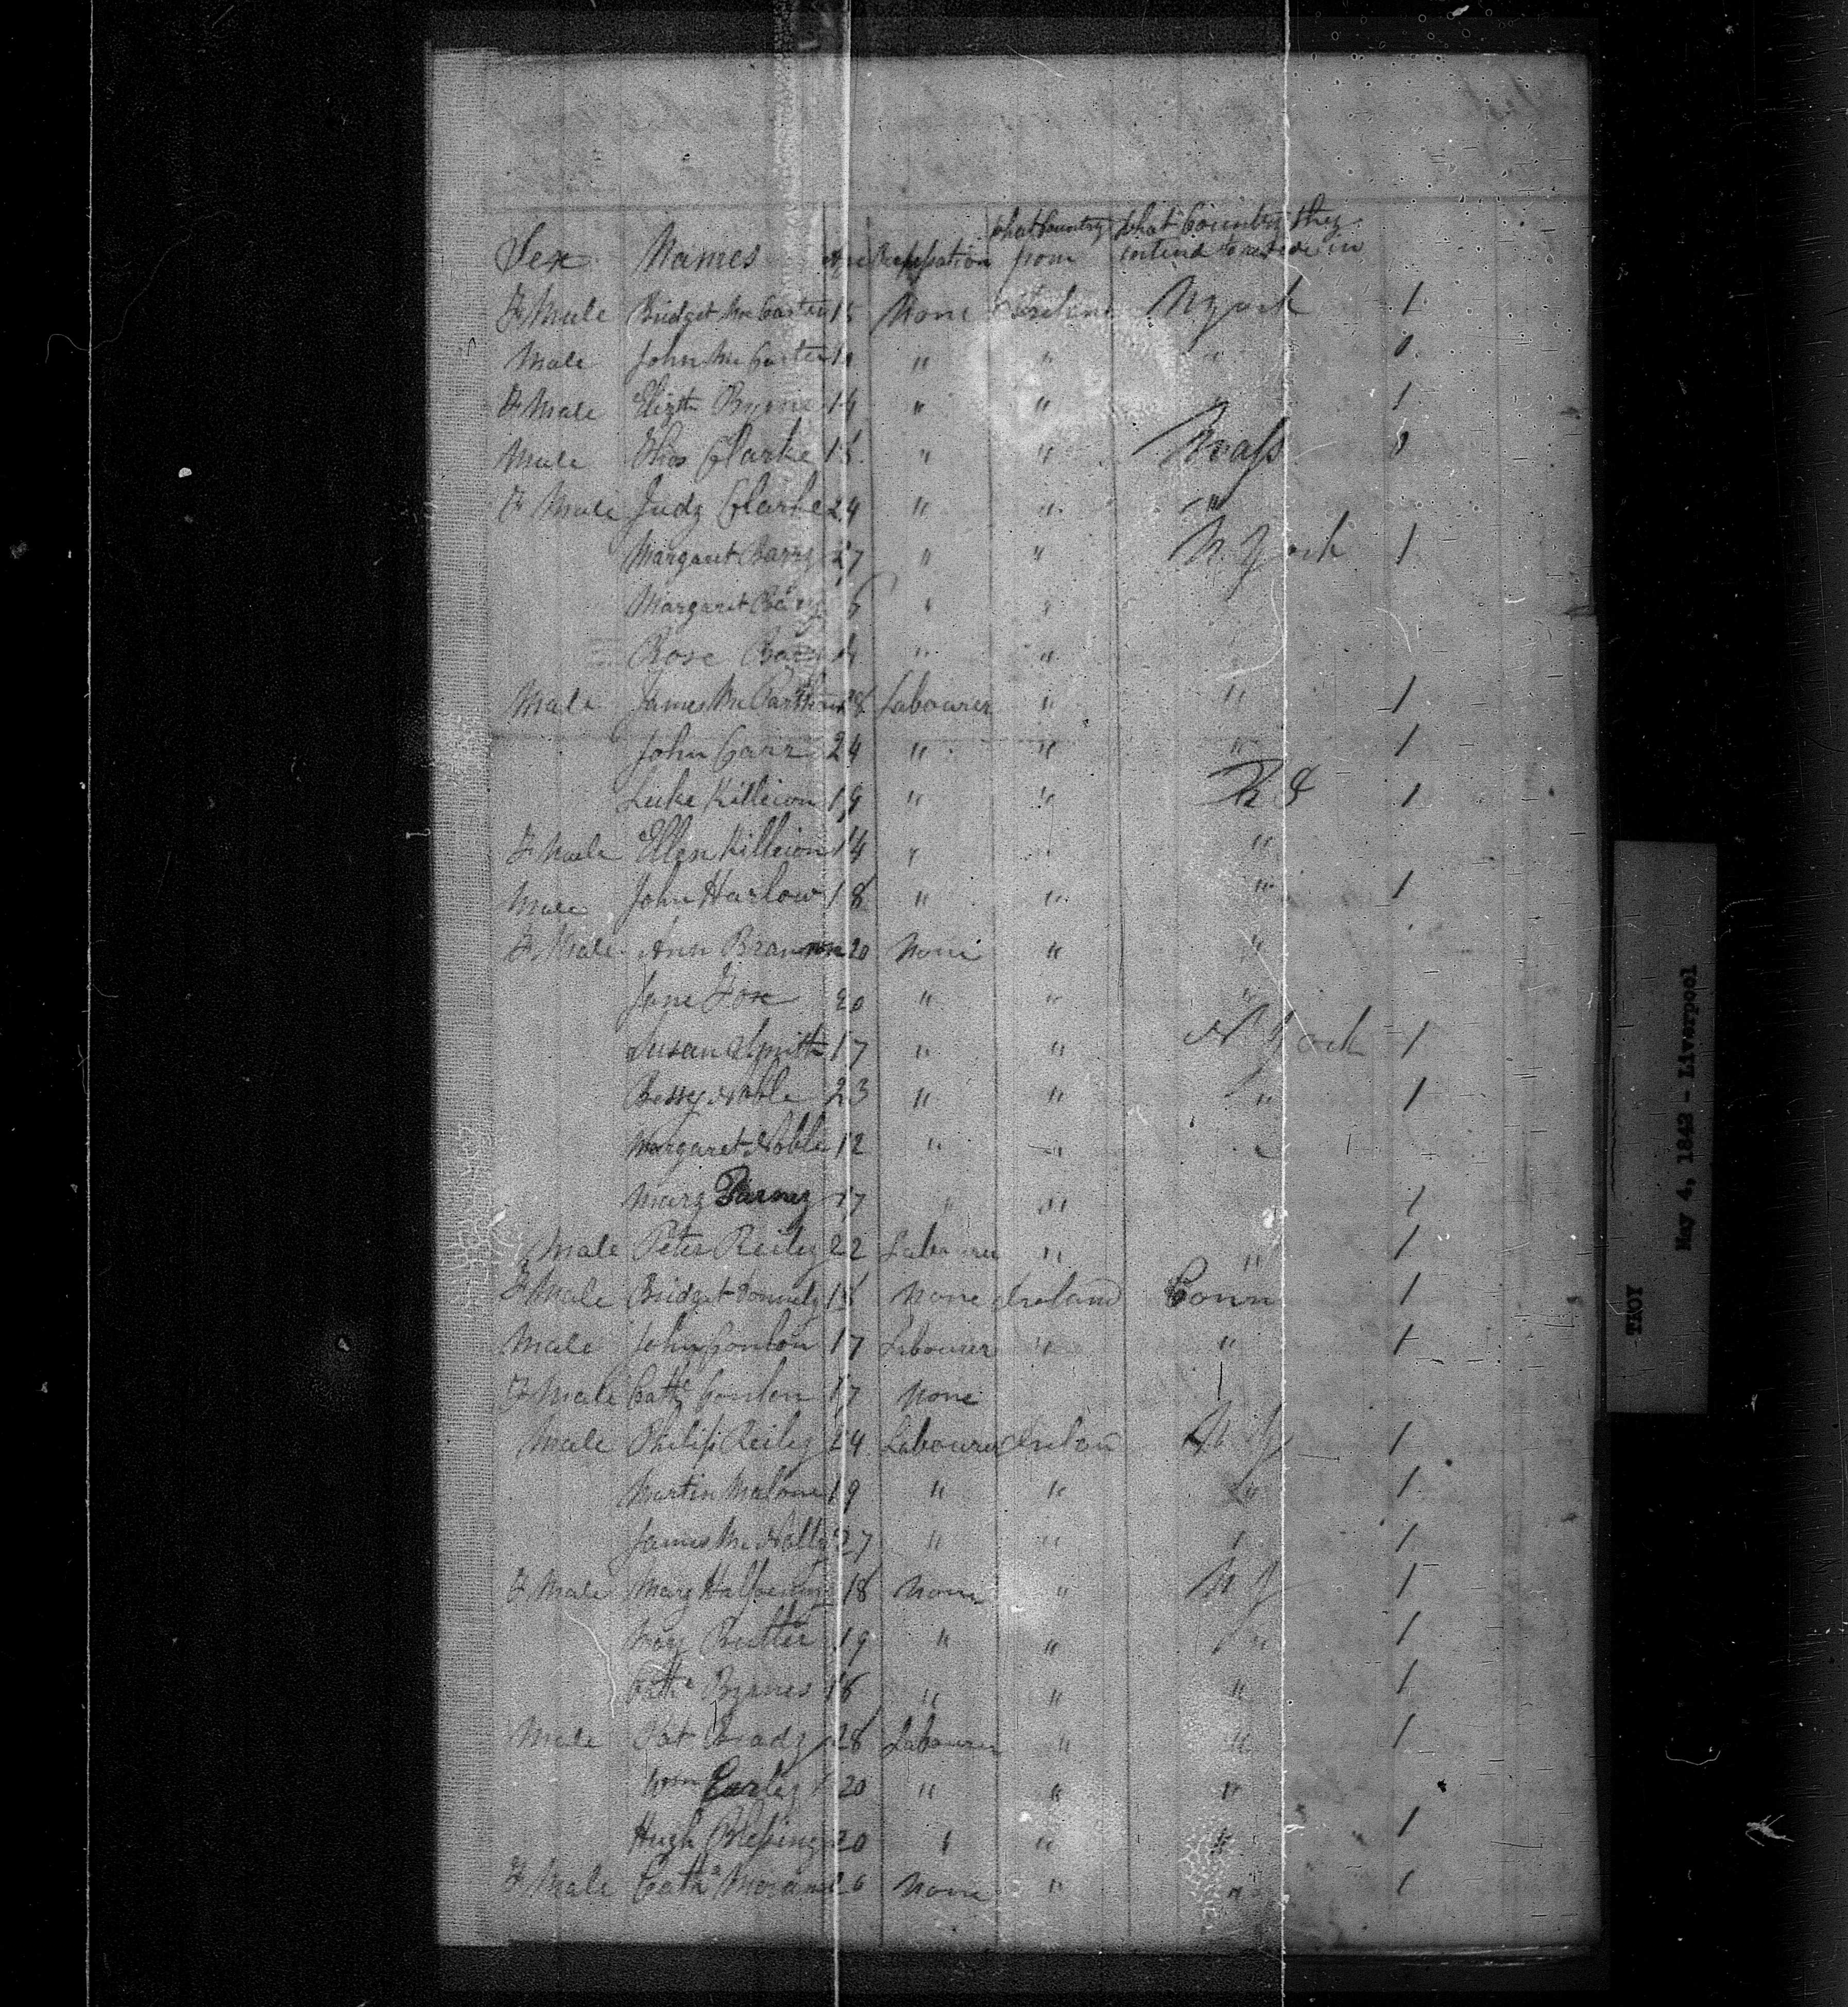 Sex Names Age Profession What Country from What Country they intend to reside in
F Male Bridget McCarten 15 None Ireland N York 1
Male John McCarten 10 " " " 0
F Male Elizth Byrne 14 " " " 1
Male Thos Clarke 15 " " Mass
F Male Judy Clarke 24 " " "
Margaret 27 " " N. York 1
Margaret " "
Rose " "
Male James McParthin 28 Labourer " " 1
John Carr 24 " " " 1
Luke Killeion 19 " " R I 1
F Male Ellen Killeion 14 " "
Male John Harlow 18 " " " 1
F Male Ann 20 None " "
Jane Fox 20 " " "
Susan Smith 17 " " N York 1
Bessy Noble 23 " " " 1
Margaret Noble 12 " "
Mary 17 " " 1
Male Peter Reiley 22 Labourer " " 1
F Male Bridget Donnely 18 None Ireland Conn 1
Male John Conlon 17 Labourer " " 1
F Male Cathe Conlon 17 None
Male Philip Reiley 24 Labourer Irelan N Y 1
Martin Malone 19 " " " 1
James McNally 27 " " 1
F Male Mary Halfpenny 18 None " N Y 1
Mary Butler 19 " " " 1
Cathe Byrnes 16 " " " 1
Male Pat Brady 28 Labourer " " 1
Wm Earley 20 " " "
Hugh Blessing 20 " " " 1
F Male Cath Moran 20 None " " 1
TROY
May 4, 1842 - Liverpool